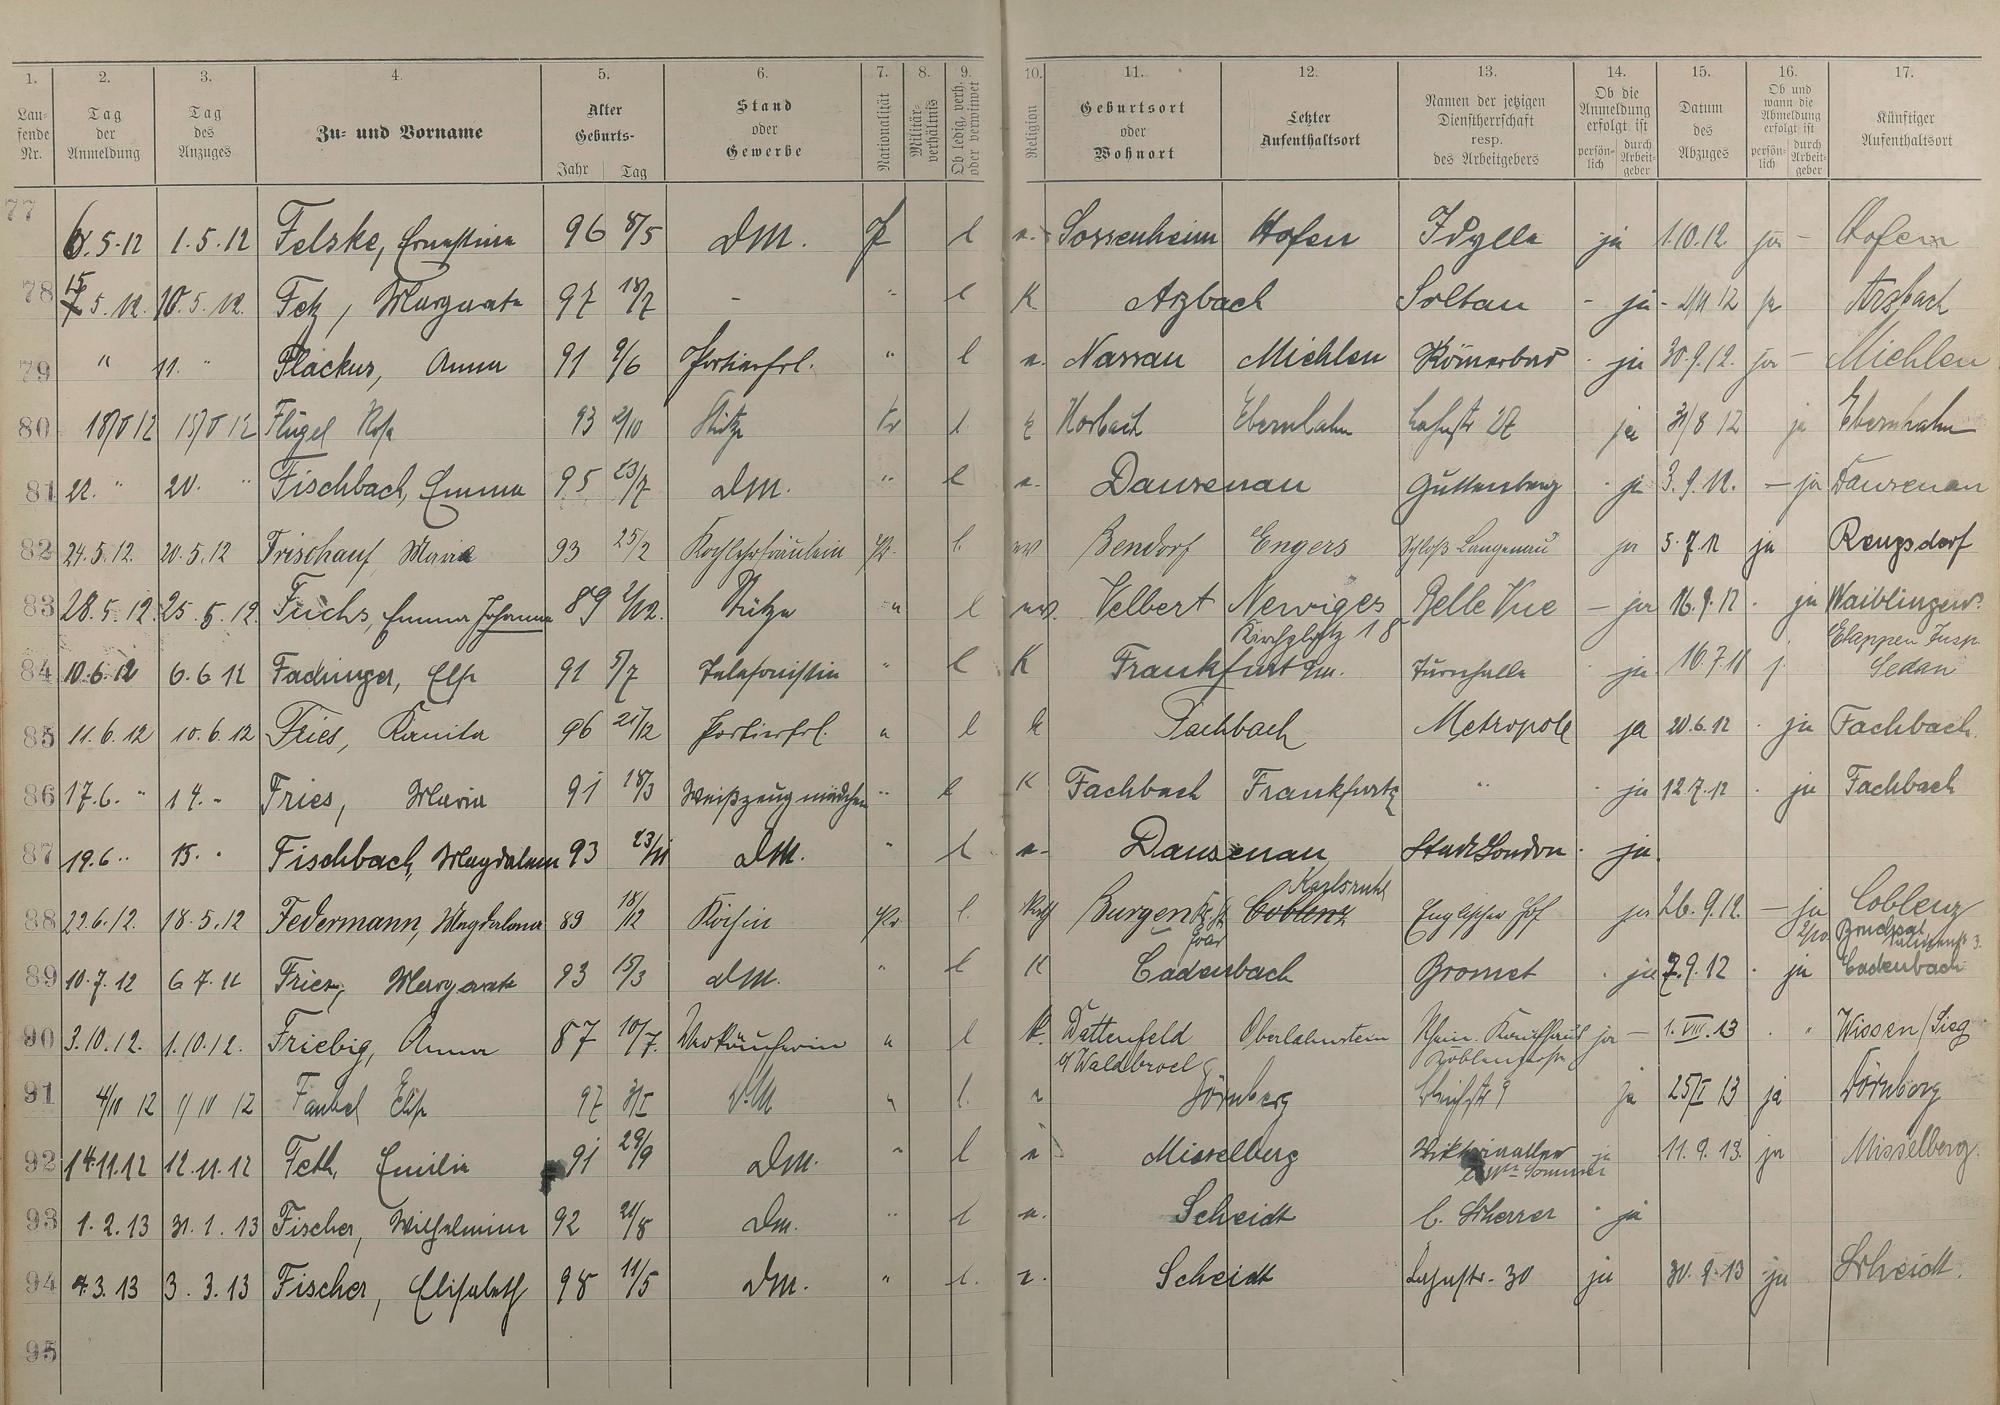 1. 2. 3. 4. 5. 6. 7. 8. 9. 10. 11. 12. 13. 14. 15. 16. 17.
Lau-
fende
Nr.
Tag
der
Anmeldung
Tag
des
Anzuges
Zu- und Vorname
Alter
Geburts-
Jahr Tag
Stand
oder
Gewerbe
Nationalität
Militär-
verhältnis
Ob ledig, verh.
oder verwitwet
Religion
Geburtsort
oder
Wohnort
Letzter
Aufenthaltsort
Namen der jetzigen
Dienstherrschaft
resp.
des Arbeitgebers
Ob die
Anmeldung
erfolgt ist
persön-
lich
durch
Arbeit-
geber
Datum
des
Abzuges
Ob und
wann die
Abmeldung
erfolgt ist
persön-
lich
durch
Arbeit-
geber
Künftiger
Aufenthaltsort
77 6.5.12 1.5.12 Felske, Ernestine 96 8/5 DM. l Sossenheim Hofen Idylle ja 1.10.12. ja – Hofen
78 15 5.12. 10.5.12. Fetz, Margarete 97 18/7 - " l K Arzbach Soltau - ja - 12 ja Arzbach
79 " 11. " Flackus, Anna 91 9/6 Portierfrl. " l Nassau Miehlen Römerbad ja 30.9.12. ja – Miehlen
80 18/5 12 15/5 12 Flügel Rosa 93 2/10 Stütze l. Horbach Ebernhahn ja 31/8 12 ja Ebernhahn
81 22. " 20. " Fischbach, Emma 95 23/7 DM. " l Dausenau Guttenberg ja 3.9.12. – ja Dausenau
82 24.5.12. 20.5.12 Frischauf, Maria 93 25/2 Kochlehrfräulein Pr. l. ev Bendorf Engers Schloß Langenau ja 5.7.12 ja Rengsdorf
83 28.5.12. 25.5.12. Fuchs, Emma Johanna 89 2/12. Stütze " l ev. Velbert Neviges Belle Vue – ja 16.9.12 . ja Waiblingen
Kirchplatz 18
84 10.6.12 6.6.12 Fachinger, Else 91 5/7 Telefonistin " l K Frankfurt a/m. Turnhalle ja 10.7.12 j. Etappen Insp.
Sedan
85 11.6.12 10.6.12 Fries, Kamila 96 Portierfrl. " l k Fachbach Metropole ja 20.6.12 . ja Fachbach.
86 17.6. " 14. " Fries, Maria 91 18/3 Weißzeugmädchen " l K Fachbach Frankfurt " ja 12.7.12 . ja Fachbach
87 19.6 " 15. " Fischbach, Magdalena 93 23/11 DM. " l Dausenau Stadt London . ja.
88 22.6.12. 18.5.12 Federmann, Magdalena 89 18/12 Köchin Pr l. Kath Burgen Karlsruhe
Coblenz Englischer Hof ja 26.9.12. – ja Coblenz
Goar Bruchsal
89 10.7.12 6.7.12 Fries, Margarete 93 15/3 DM. " l K Cadenbach Gromet . ja 7.9.12 . ja Cadenbach
90 3.10.12. 1.10.12. Friebig, Anna 87 10/7. Verkäuferin " l k. Dattenfeld Oberlahnstein Rhein. Kaufhaus ja – 1.VIII.13 . " Wissen/Sieg
b/Waldbroel Coblenzerstr
91 4/10 12 1/10 12 Faubel Elise 97 D.M " l. Dörnberg ja 25/I 13 ja Dörnberg
92 14.11.12 12.11.12 Feth, Emilie 91 29/9 DM. " l Misselberg Viktoriaallee ja 11.9.13. ja Misselberg.
Sommer
93 1.2.13 31.1.13 Fischer, Wilhelmine 92 21/8 DM. " l Scheidt C. Scherrer " ja
94 4.3.13 3.3.13 Fischer, Elisabeth 98 11/5 DM. " l. Scheidt Lahnstr. 30 ja 30.9.13 ja Scheidt.
95